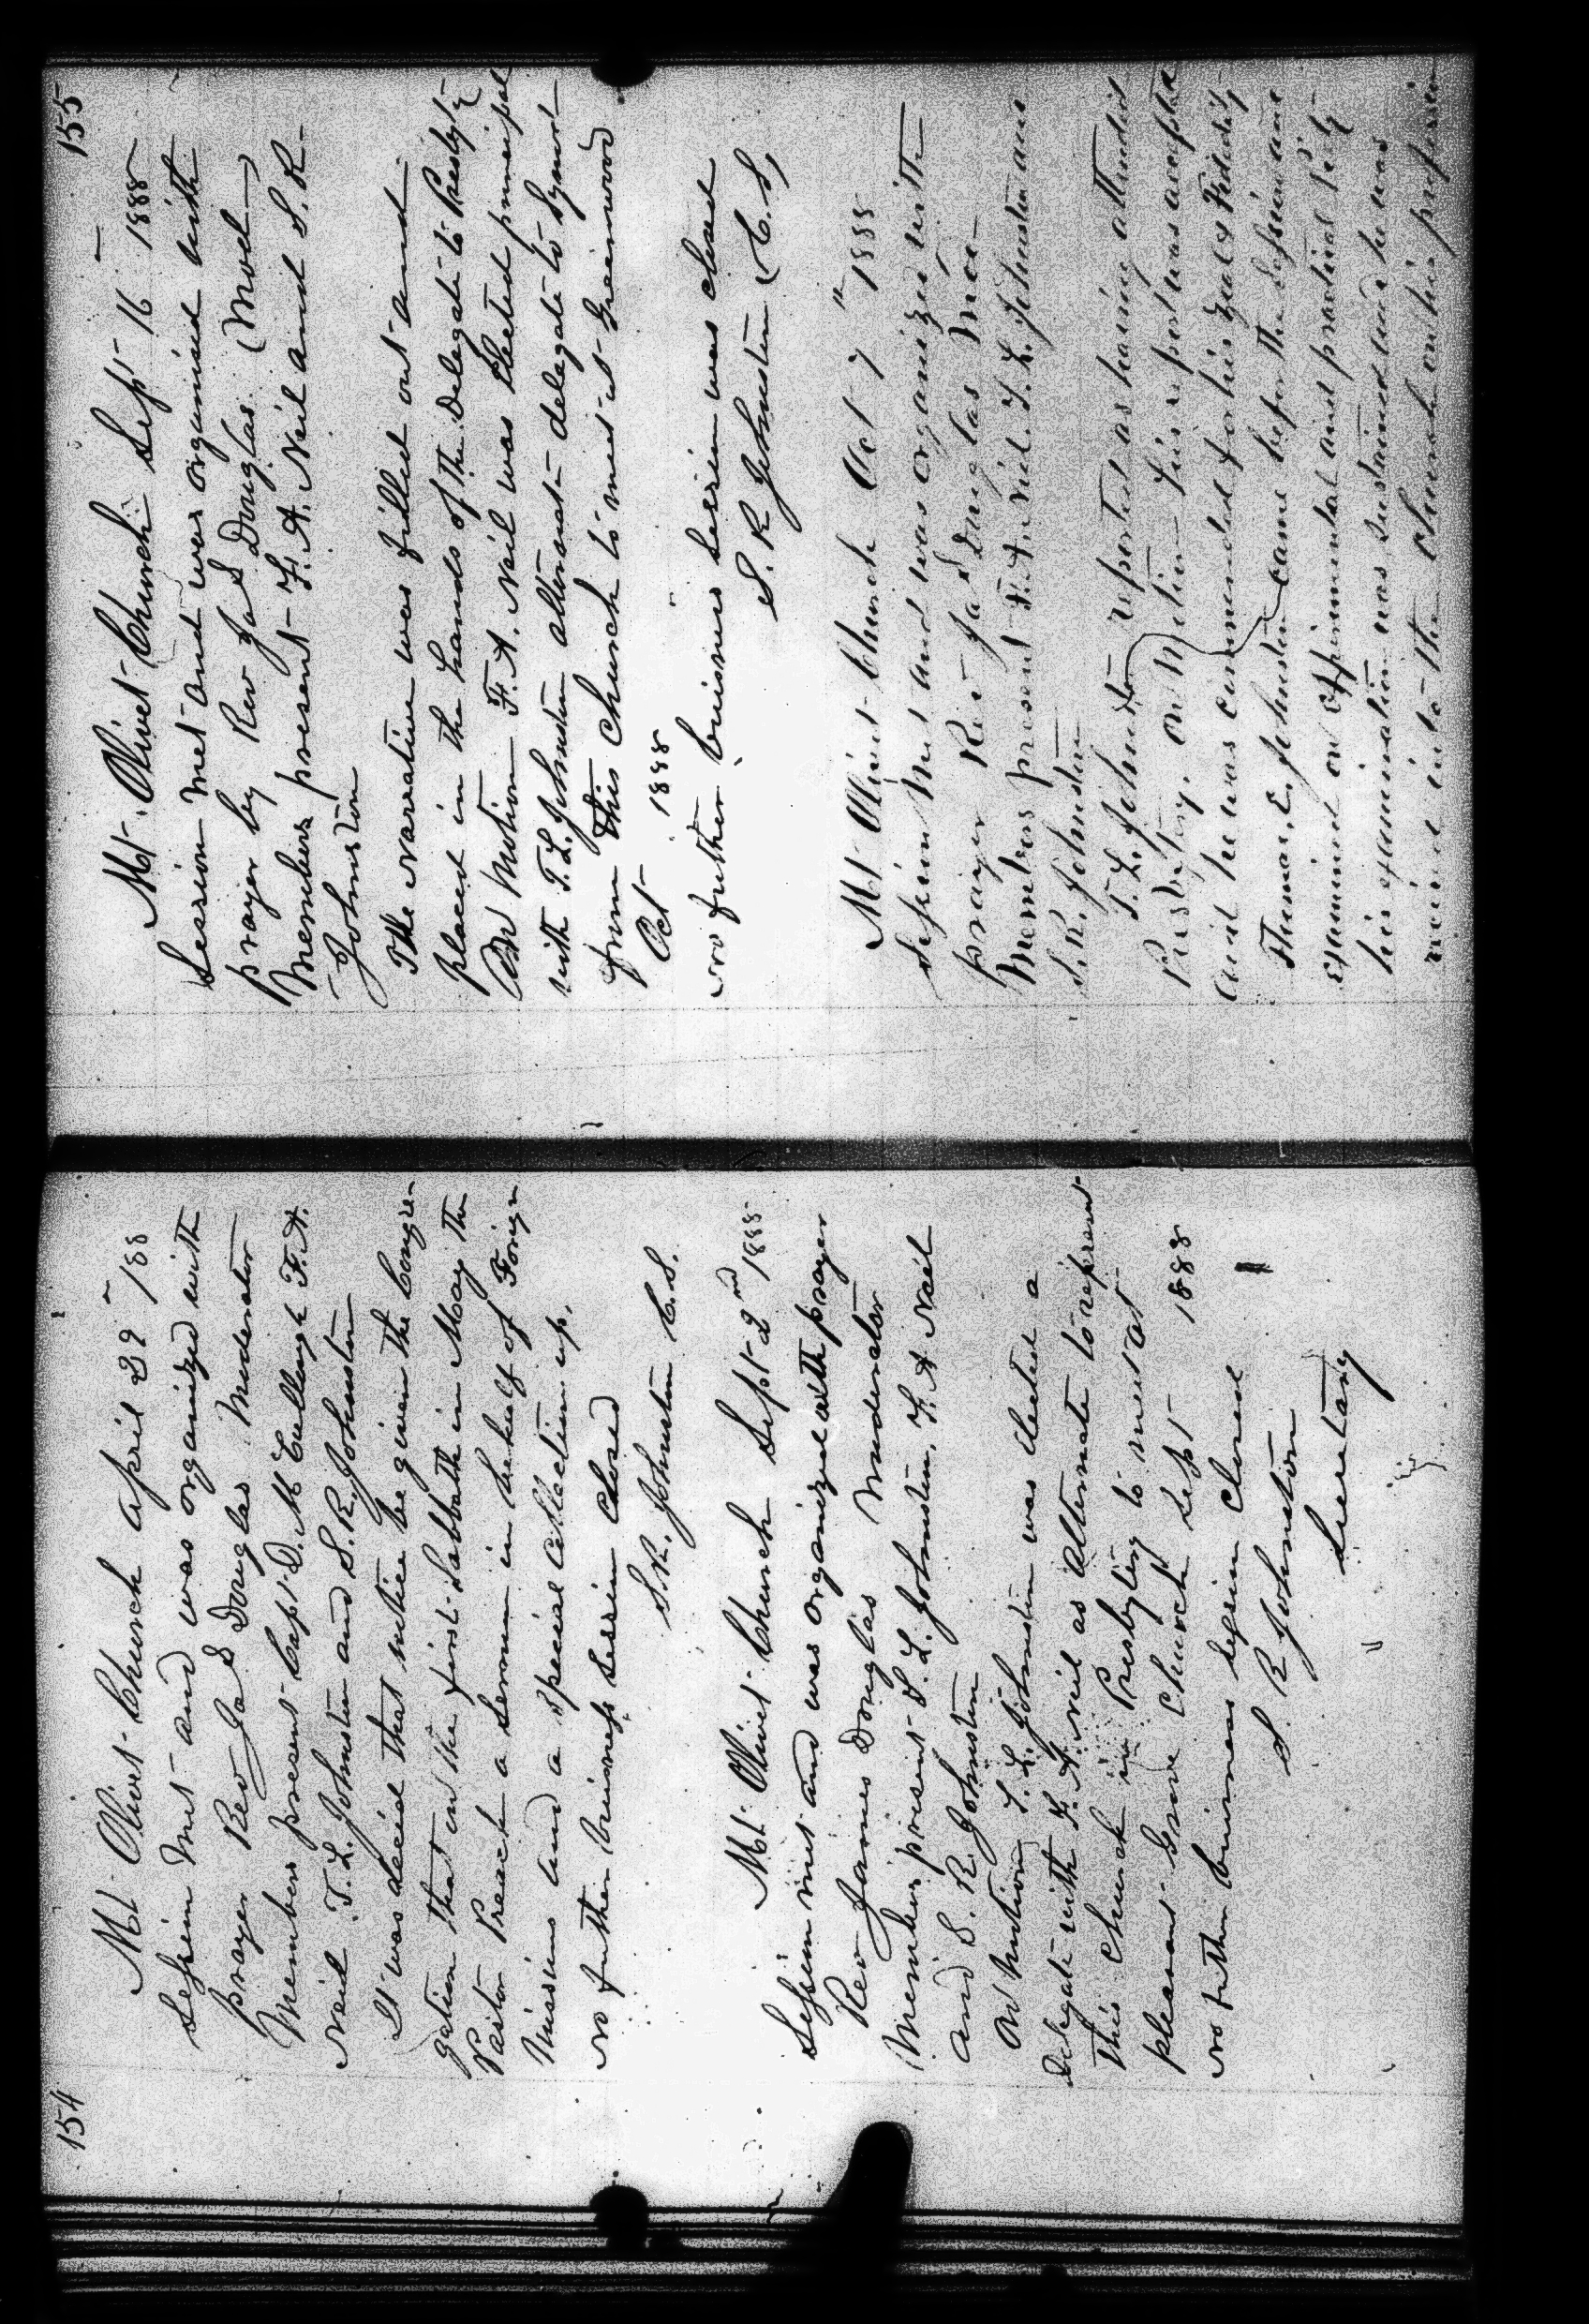 154
Mt. Olivet Church April 29 188
Session Met and was organized with
prayer Rev Jas Douglas Moderator
Members present Capt D. McCullough F. A.
Neil T. L. Johnston and S. R. Johnston
It was decid that notice be given the Congre
gation that on the first Sabbath in May the
Pastor Preach a sermon in behalf of Foreign
Missions and a special collection up.
No futher business Session Closed
S. R. Johnston C. S.
Mt. Olivet Church Sept 2nd 1888
Session met and was organized with prayer
Rev James Douglas Moderator
Members present T. L. Johnston, F. A. Neil
and S. R. Johnston
On Motion T. L. Johnston was elected a
Delegate with F. A. Neil as Alternate to represent
this Church in Presbytery to meet at
pleasant Grove Church Sept 1888
No futher business Session Closed
S. R Johnston
Secretary
155
Mt. Olivet Church Sept 16 1888
Session met and was organized with
prayer by Rev Jas Douglas (Mod)
Members present F. A. Neil and S. R.
Johnston
The Narrative was filled out and
placed in the hands of the Delegate to Presbytry
On Motion F. A. Neil was Elected principal
with T. L. Johnston alternate delegate to Synod
from this Church to meet at Greenwood
Oct 1888
No futher buisness Session was closed
S. R Johnston (C. S,
Mt Olivet Church Oct 7 " 1888
Session Met and was organized with
prayer Rev Jas Douglas Mod
Members present F. A. Neil. T. L. Johnston and
S. R. Johnston
T. L. Johnston reported as having attended
Presbytery. On Motion his report was accepted
and he was commended for his zeal & Fidelity
Thomas. E. Johnston came before the Session and
examined on experimental and practical Piety
his examination was sustained and he was
received into the Church on his profession